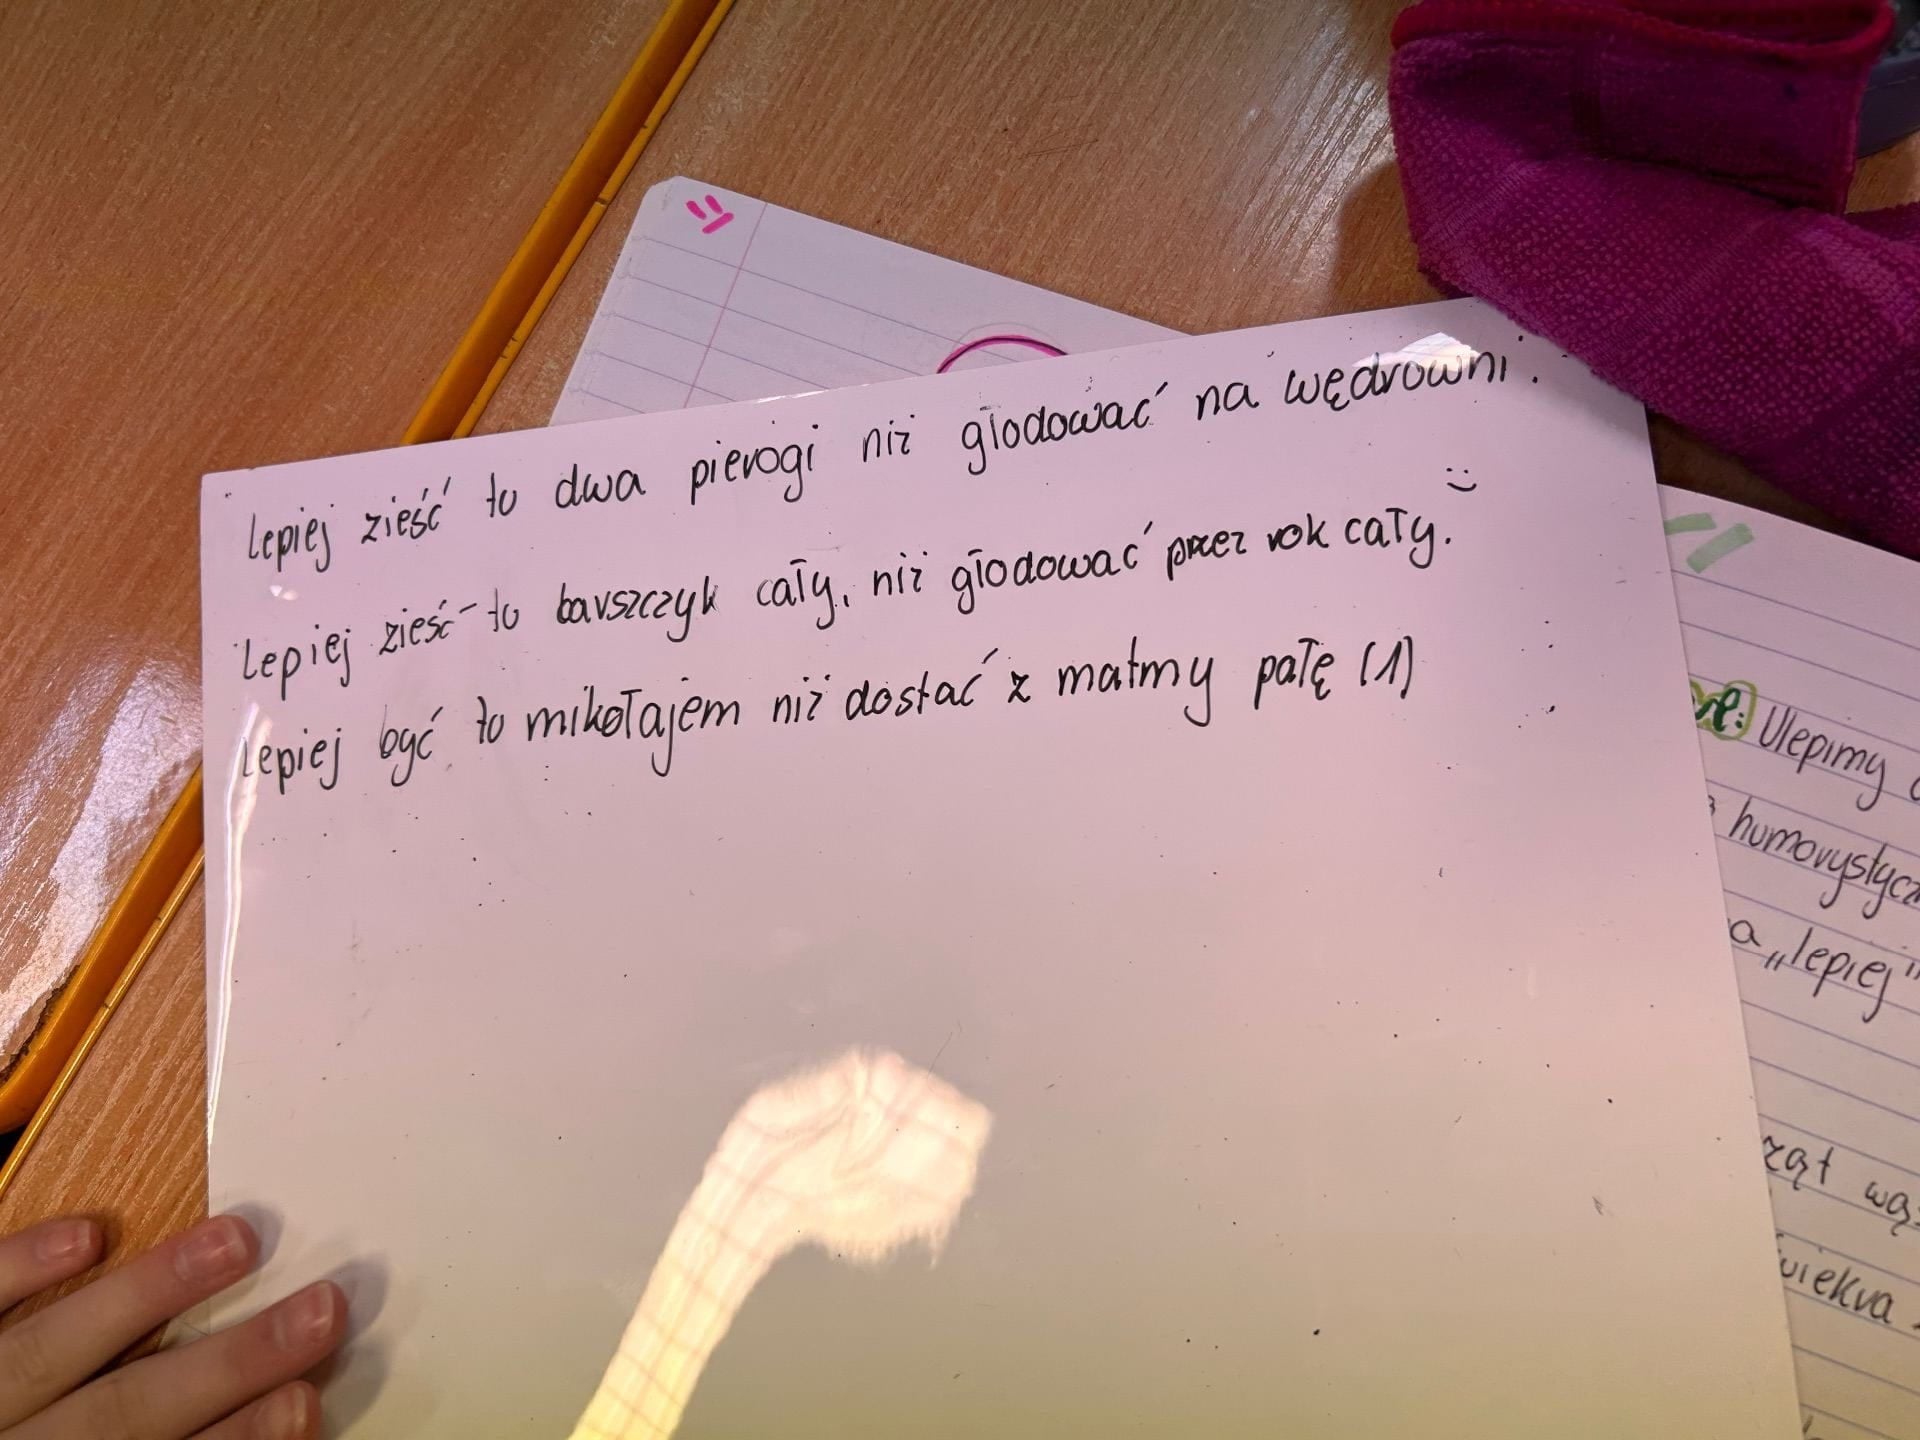 lepiej zieść tu dwa pierogi niż głodować na wędrowni.
lepiej zieść tu barszczyk cały, niż głodować przez rok cały. :)
lepiej być tu mikołajem niż dostać z matmy pałę (1)
Ulepimy
humorystycz
a „lepiej"
ząt wą
wiekra